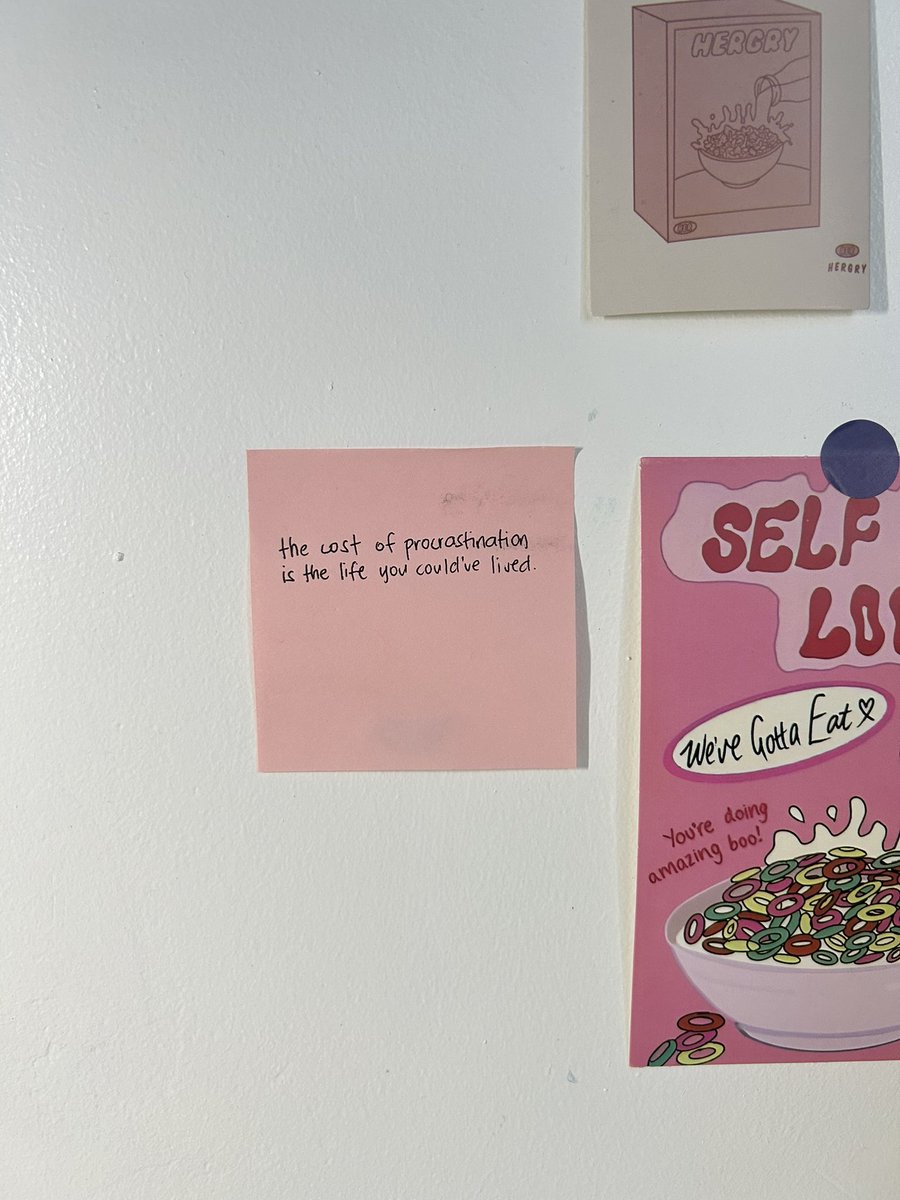 HERGRY
HERGRY
the cost of procrastination
is the life you could've lived.
SELF
We've Gotta Eat
You're doing
amazing boo!